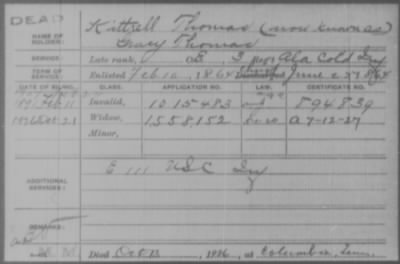 DEAD
NAME OF SOLDIER:
Kittrell Thomas (now known as)
Gray Thomas
SERVICE:
Late rank, E, 3 Regt Ala Cold Inf
TERM OF SERVICE:
Enlisted Feb 10, 1864 Discharged June 25, 1864
DATE OF FILING.
CLASS.
APPLICATION NO.
LAW.
CERTIFICATE NO.
1891 Feb 11
Invalid,
1015483
894839
1926 Oct 23
Widow,
1558152
A 7-12-27
Minor,
ADDITIONAL SERVICES:
E 111 USC Inf
REMARKS:
Died Oct 13, 1926, at Columbia, Tenn.